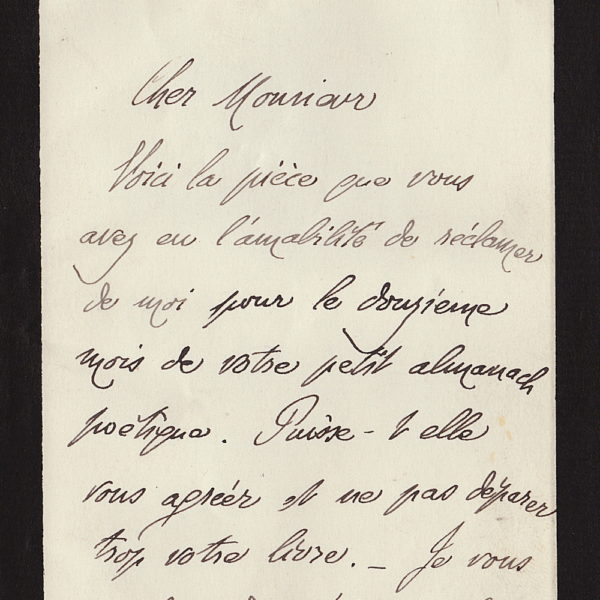 Cher Monsieur
Voici la pièce que vous
avez eu l'amabilité de réclamer
de moi pour le douzième
mois de votre petit almanach
poëtique. Puisse-t elle
vous agréer et ne pas déparer
trop votre livre._ Je vous